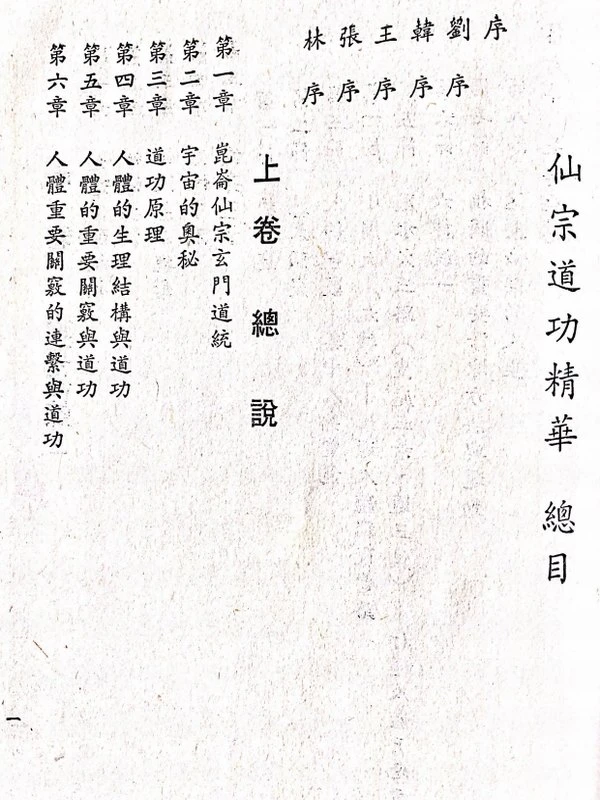 仙宗道功精華 總目
序
劉序
韓序
王序
張序
林序
上卷 總說
第一章 崑崙仙宗玄門道統
第二章 宇宙的奧秘
第三章 道功原理
第四章 人體的生理結構與道功
第五章 人體的重要關竅與道功
第六章 人體重要關竅的連繫與道功
一